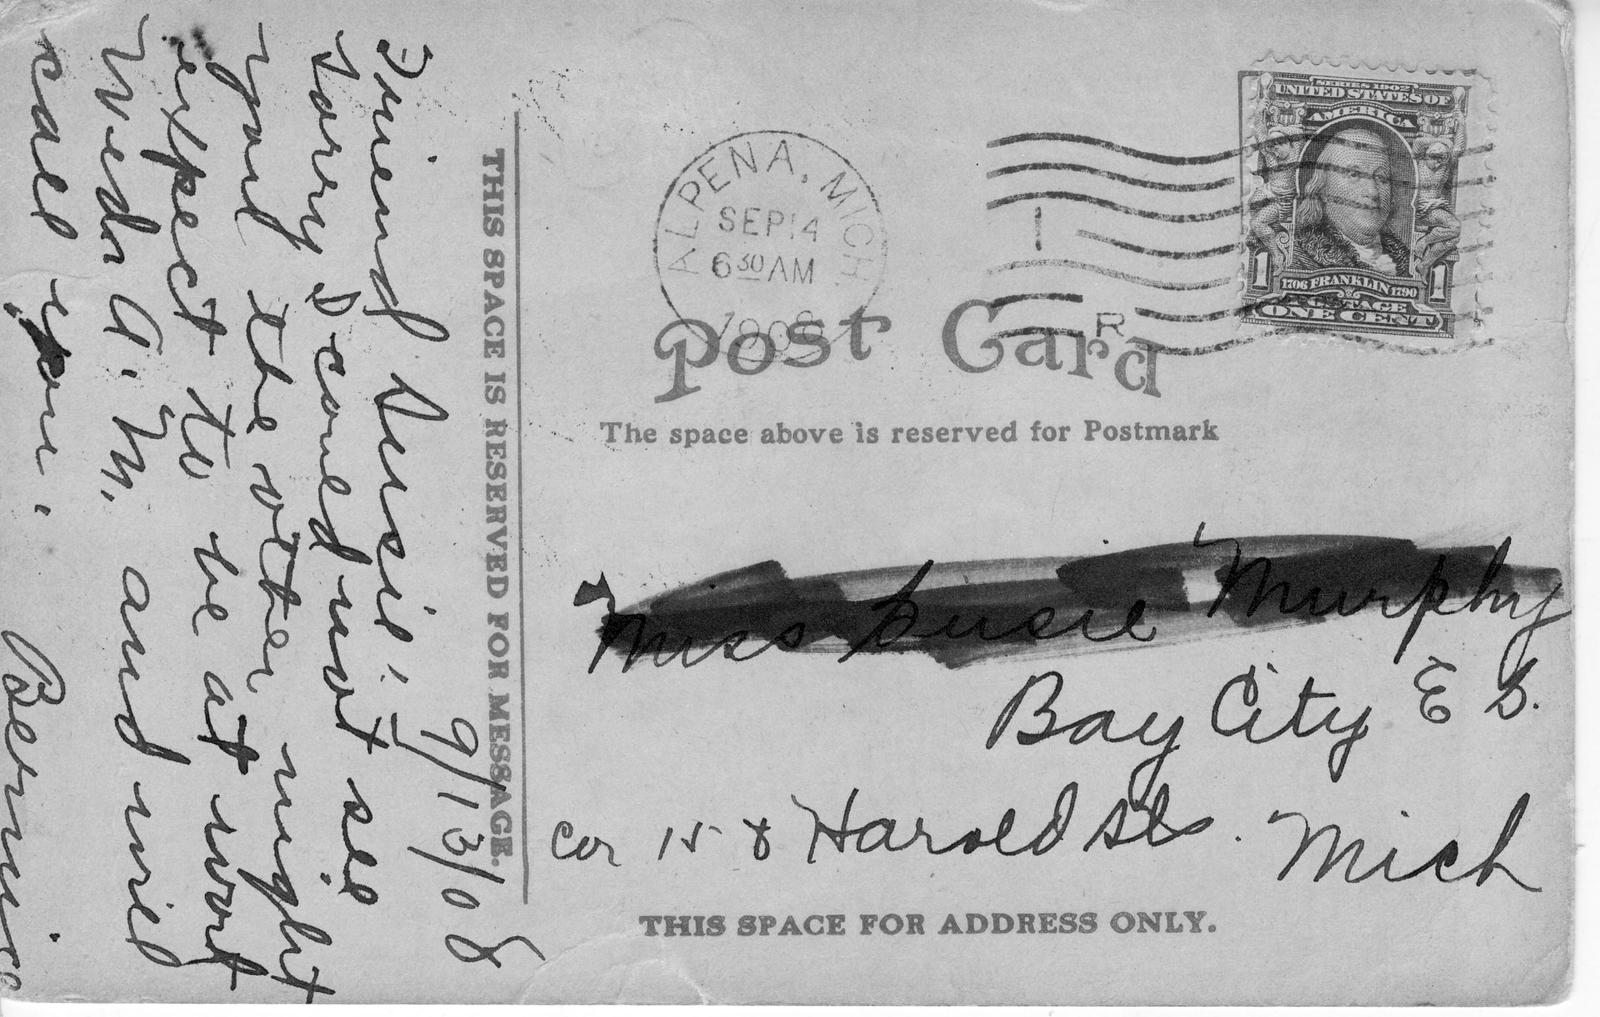 9/13/08
Friend Susie:
Sorry I could not see
you the other night
expect to be at work
Weds A.M. and will
call you.
Bernice
THIS SPACE IS RESERVED FOR MESSAGE.
ALPENA, MICH
SEP 14
6 30 AM
1908
1
R
SERIES 1902
UNITED STATES OF
AMERICA
1 1
1706 FRANKLIN 1790
POSTAGE
ONE CENT
Post Card
The space above is reserved for Postmark
Miss Susie Murphy
Bay City E S.
Cor 15 & Harold Sts. Mich
THIS SPACE FOR ADDRESS ONLY.